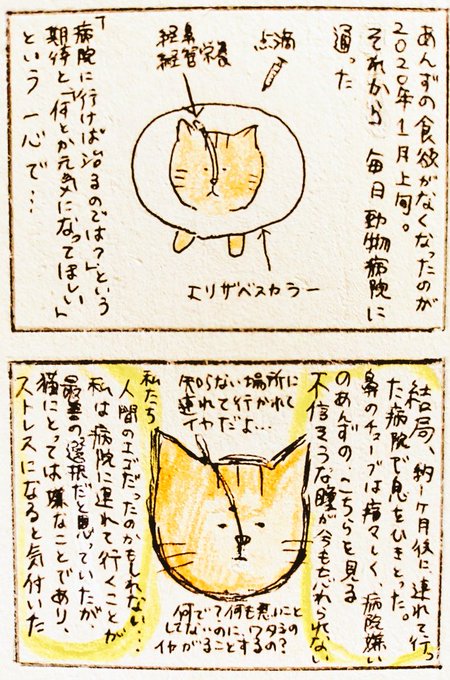 あんずの食欲がなくなったのが
2020年1月上旬。
それから 毎日動物病院に
通った
点滴
経鼻
経管栄養
エリザベスカラー
「病院に行けば治るのでは?」という
期待と「何とか元気になってほしい」
という 一心で…
結局、約1ヶ月後に、連れて行っ
た病院で息をひきとった。
鼻のチューブは痛々しく、病院嫌い
のあんずの、こちらを見る
不信そうな瞳が今も忘れられない
知らない場所に
連れて行かれて
イヤだよ…
何で?何も悪いこと
してないのに、ワタシの
イヤがることするの?
私たち
人間のエゴだったのかもしれない…
私は病院に連れて行くことが
最善の選択だと思っていたが
猫にとっては嫌なことであり、
ストレスになると気付いた